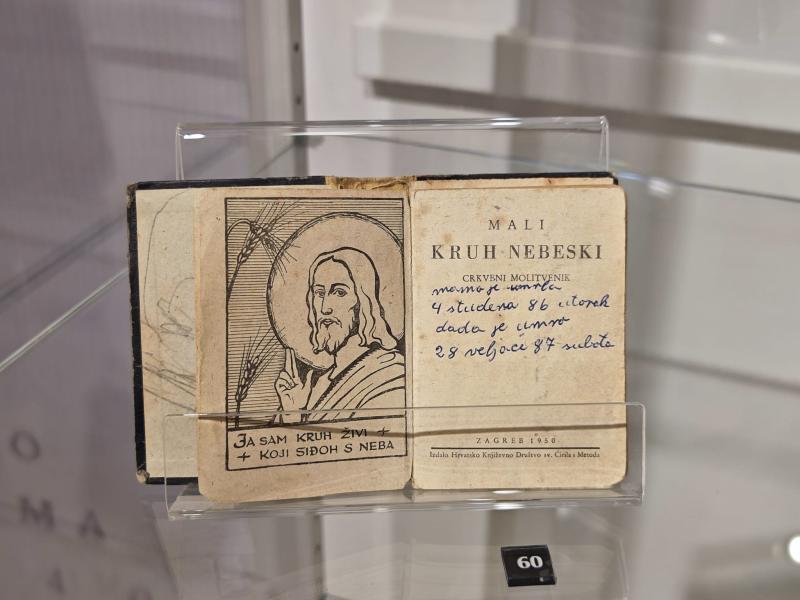 JA SAM KRUH ŽIVI +
+ KOJI SIĐOH S NEBA
MALI
KRUH NEBESKI
CRKVENI MOLITVENIK
mama je umrla
4 studena 86 utorak
dada je umro
28 veljače 87 subota
ZAGREB 1950
Izdalo Hrvatsko Književno Društvo sv. Ćirila i Metoda
60
O
MA